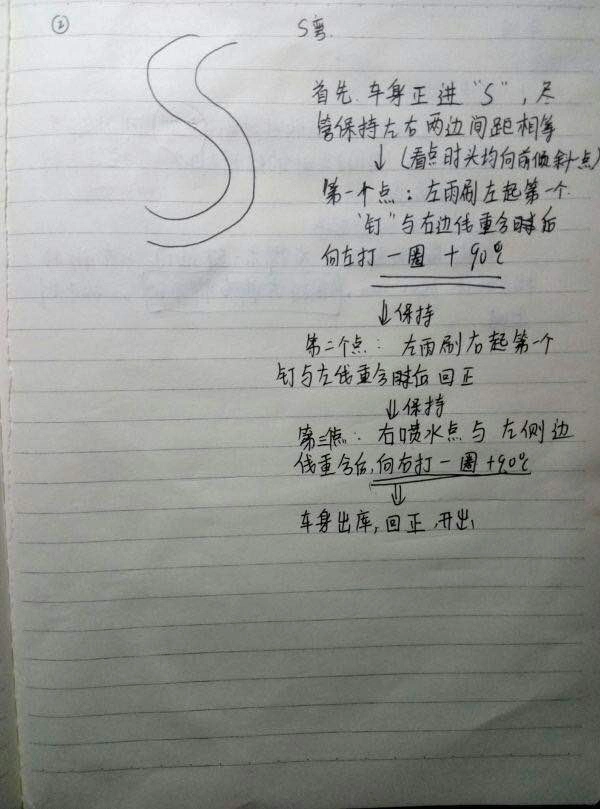 ②
S弯.
首先.车身正进"S",尽
管保持左右两边间距相等
↓(看点时头均向前倾斜一点)
第一个点:左雨刷左起第一个
"钉"与右边线重合时后
向左打一圈+90°
⇓保持
第二个点:左雨刷右起第一个
钉与左线重合时后回正
⇓保持
第三点:右喷水点与左侧边
线重合后,向右打一圈+90°
⇓
车身出库,回正,开出,